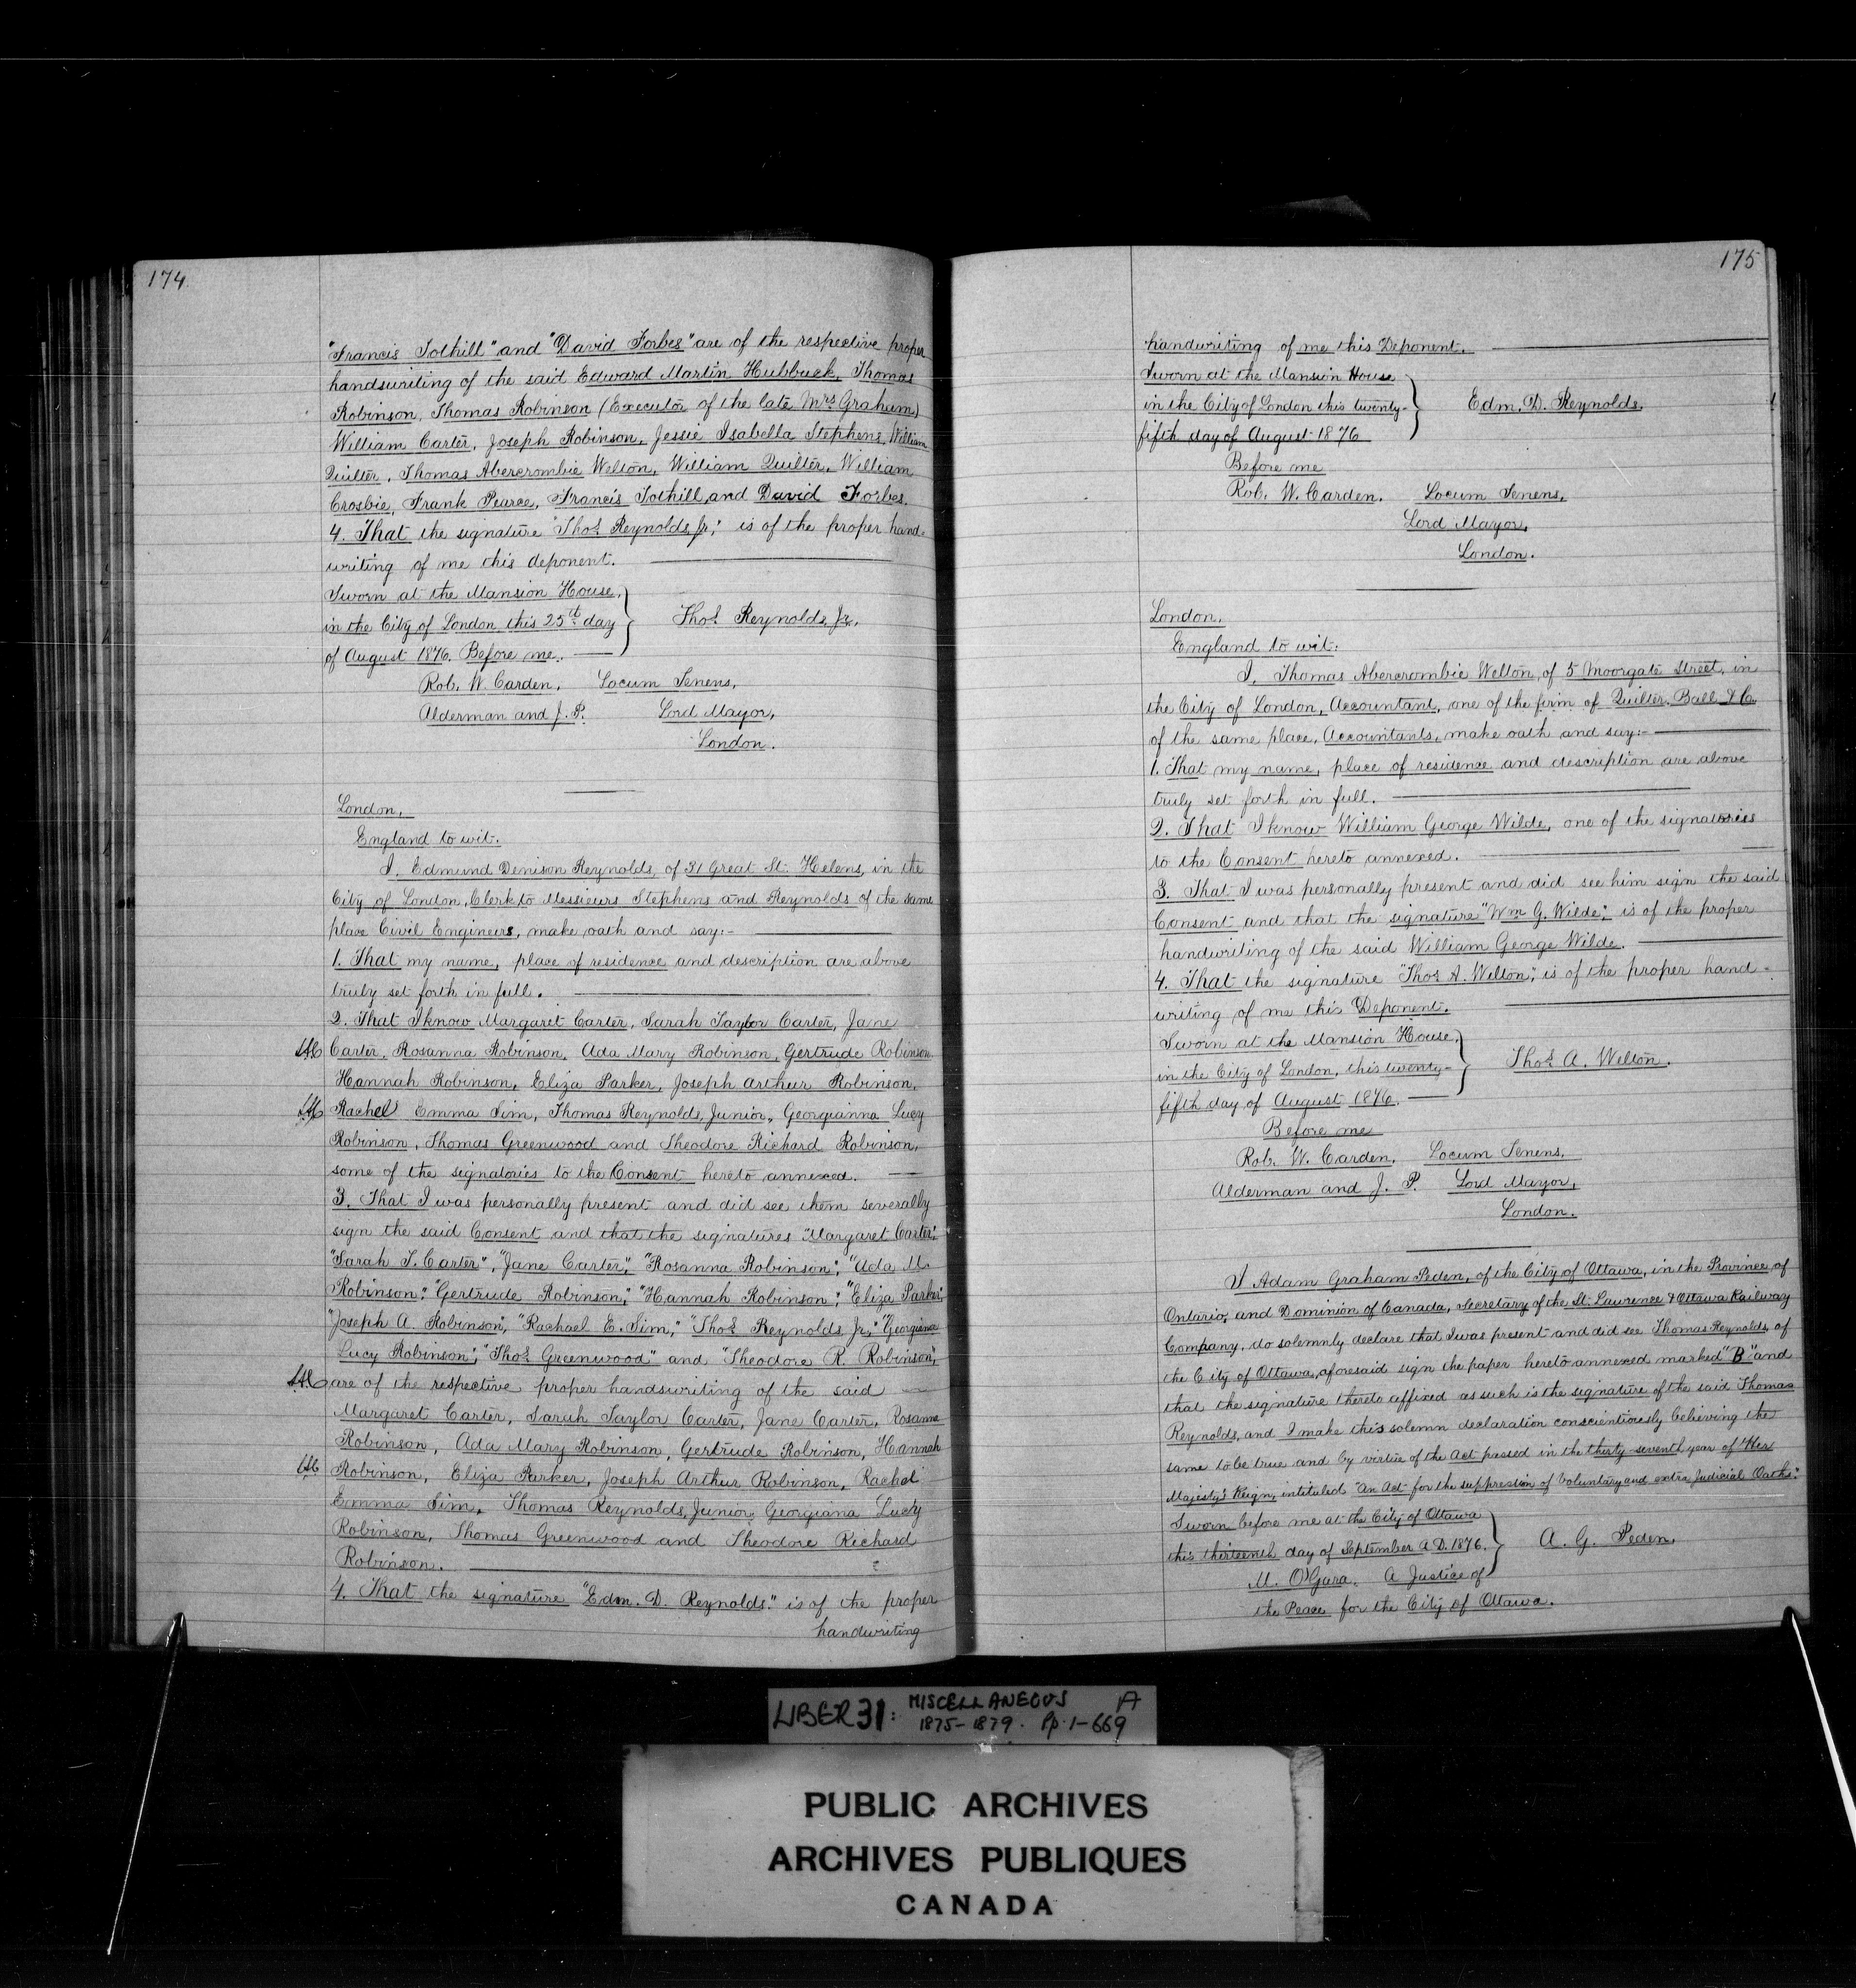 174
"Francis Tothill" and "David Forbes" are of the respective proper
handwriting of the said Edward Martin Hubbuck, Thomas
Robinson, Thomas Robinson (Executor of the late Mrs Graham)
William Carter, Joseph Robinson, Jessie Isabella Stephens, William
Quilter, Thomas Abercrombie Welton, William Quilter, William
Crosbie, Frank Pearce, Francis Tothill, and David Forbes.
4. That the signature "Thos Reynolds, Jr," is of the proper hand-
writing of me this deponent.
Sworn at the Mansion House,
in the City of London, this 25th day
of August 1876. Before me.
Thos Reynolds, Jr.
Rob. W. Carden, Locum Tenens,
Alderman and J. P. Lord Mayor,
London.
London,
England to wit.
I, Edmund Denison Reynolds, of 31 Great St. Helens, in the
City of London, Clerk to Messieurs Stephens and Reynolds of the same
place Civil Engineers, make oath and say:-
1. That my name, place of residence and description are above
truly set forth in full.
2. That I know Margaret Carter, Sarah Taylor Carter, Jane
Carter, Rosanna Robinson, Ada Mary Robinson, Gertrude Robinson,
Hannah Robinson, Eliza Parker, Joseph Arthur Robinson,
Rachel Emma Sim, Thomas Reynolds, Junior, Georgianna Lucy
Robinson, Thomas Greenwood and Theodore Richard Robinson,
some of the signatories to the Consent hereto annexed.
3. That I was personally present and did see them severally
sign the said Consent and that the signatures "Margaret Carter",
"Sarah T. Carter", "Jane Carter," "Rosanna Robinson", "Ada M.
Robinson", "Gertrude Robinson," "Hannah Robinson", "Eliza Parker",
"Joseph A. Robinson", "Rachael E. Sim," "Thos Reynolds Jr," "Georgiana
Lucy Robinson", "Thos Greenwood" and "Theodore R. Robinson",
are of the respective proper handwriting of the said
Margaret Carter, Sarah Taylor Carter, Jane Carter, Rosanna
Robinson, Ada Mary Robinson, Gertrude Robinson, Hannah
Robinson, Eliza Parker, Joseph Arthur Robinson, Rachel
Emma Sim, Thomas Reynolds, Junior, Georgiana Lucy
Robinson, Thomas Greenwood and Theodore Richard
Robinson.
4. That the signature "Edm. D. Reynolds." is of the proper
handwriting
175
handwriting of me this Deponent.
Sworn at the Mansion House
in the City of London this twenty-
fifth day of August 1876
Edm. D. Reynolds.
Before me
Rob. W. Carden. Locum Tenens,
Lord Mayor,
London.
London,
England to wit:
I, Thomas Abercrombie Welton, of 5 Moorgate Street, in
the City of London, Accountant, one of the firm of Quilter, Ball & Co.
of the same place, Accountants, make oath and say:-
1. That my name, place of residence and description are above
truly set forth in full.
2. That I know William George Wilde, one of the signatories
to the Consent hereto annexed.
3. That I was personally present and did see him sign the said
Consent and that the signature "Wm G. Wilde", is of the proper
handwriting of the said William George Wilde.
4. That the signature "Thos A. Welton", is of the proper hand-
writing of me this Deponent.
Sworn at the Mansion House,
in the City of London, this twenty-
fifth day of August 1876.
Thos A. Welton.
Before me
Rob. W. Carden, Locum Tenens,
Alderman and J. P. Lord Mayor,
London.
I Adam Graham Peden, of the City of Ottawa, in the Province of
Ontario, and Dominion of Canada, Secretary of the St. Lawrence & Ottawa Railway
Company, do solemnly declare that I was present and did see Thomas Reynolds, of
the City of Ottawa, aforesaid sign the paper hereto annexed marked "B" and
that the signature thereto affixed as such is the signature of the said Thomas
Reynolds, and I make this solemn declaration conscientiously believing the
same to be true and by virtue of the Act passed in the thirty-seventh year of Her
Majesty's Reign, intituled "An Act for the suppression of Voluntary and extra Judicial Oaths."
Sworn before me at the City of Ottawa
this thirteenth day of September A.D. 1876.
A. G. Peden.
M. O'Gara. A Justice of
the Peace for the City of Ottawa.
LIBER 31: MISCELLANEOUS A
1875-1879. Pp. 1-669
PUBLIC ARCHIVES
ARCHIVES PUBLIQUES
CANADA